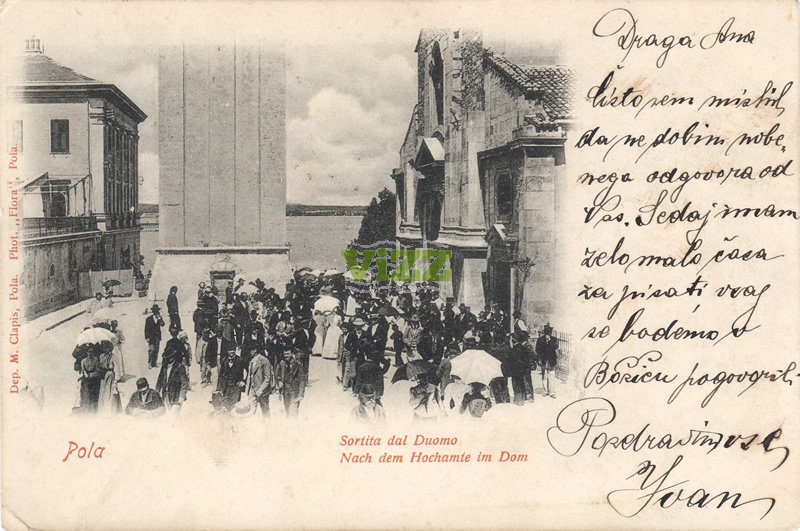 Draga Ana
Čisto sem mislil
da ne dobim nobe-
nega odgovora od
Vas. Sedaj imam
zelo malo časa
za pisati vsaj
se bodemo v
Božiču pogovorili.
Pozdravim vse
Yvan
ViZZ
Dep. M. Clapis, Pola. Phot. „Flora", Pola.
Pola
Sortita dal Duomo
Nach dem Hochamte im Dom